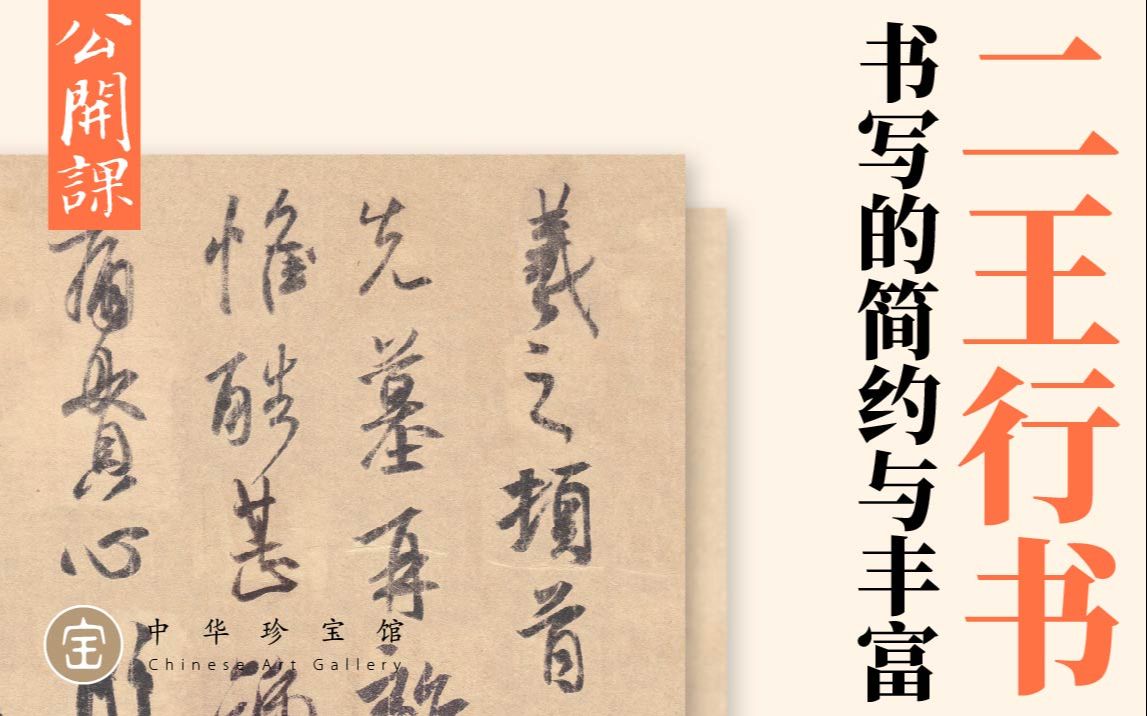 公開課
二王行书
书写的简约与丰富
羲之頓首
先墓再離
惟酷甚
痛貫心
宝
中华珍宝馆
Chinese Art Gallery